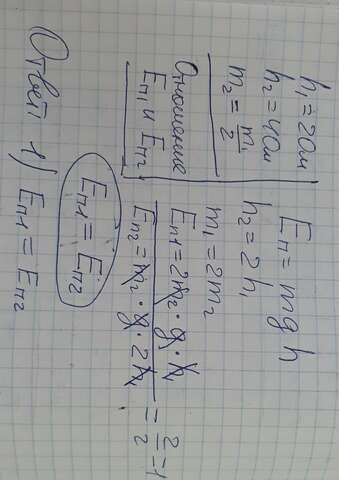 h₁ = 20м
h₂ = 40м
m₂ = m₁/2
Отношение
Eп₁ и Eп₂
Eп = mgh
h₂ = 2h₁
m₁ = 2m₂
Eп₁ = 2m₂ · g · h₁
Eп₂ = m₂ · g · 2h₁ = 2/2 = 1
Eп1 = Eп2
Ответ 1) Eп1 = Eп2